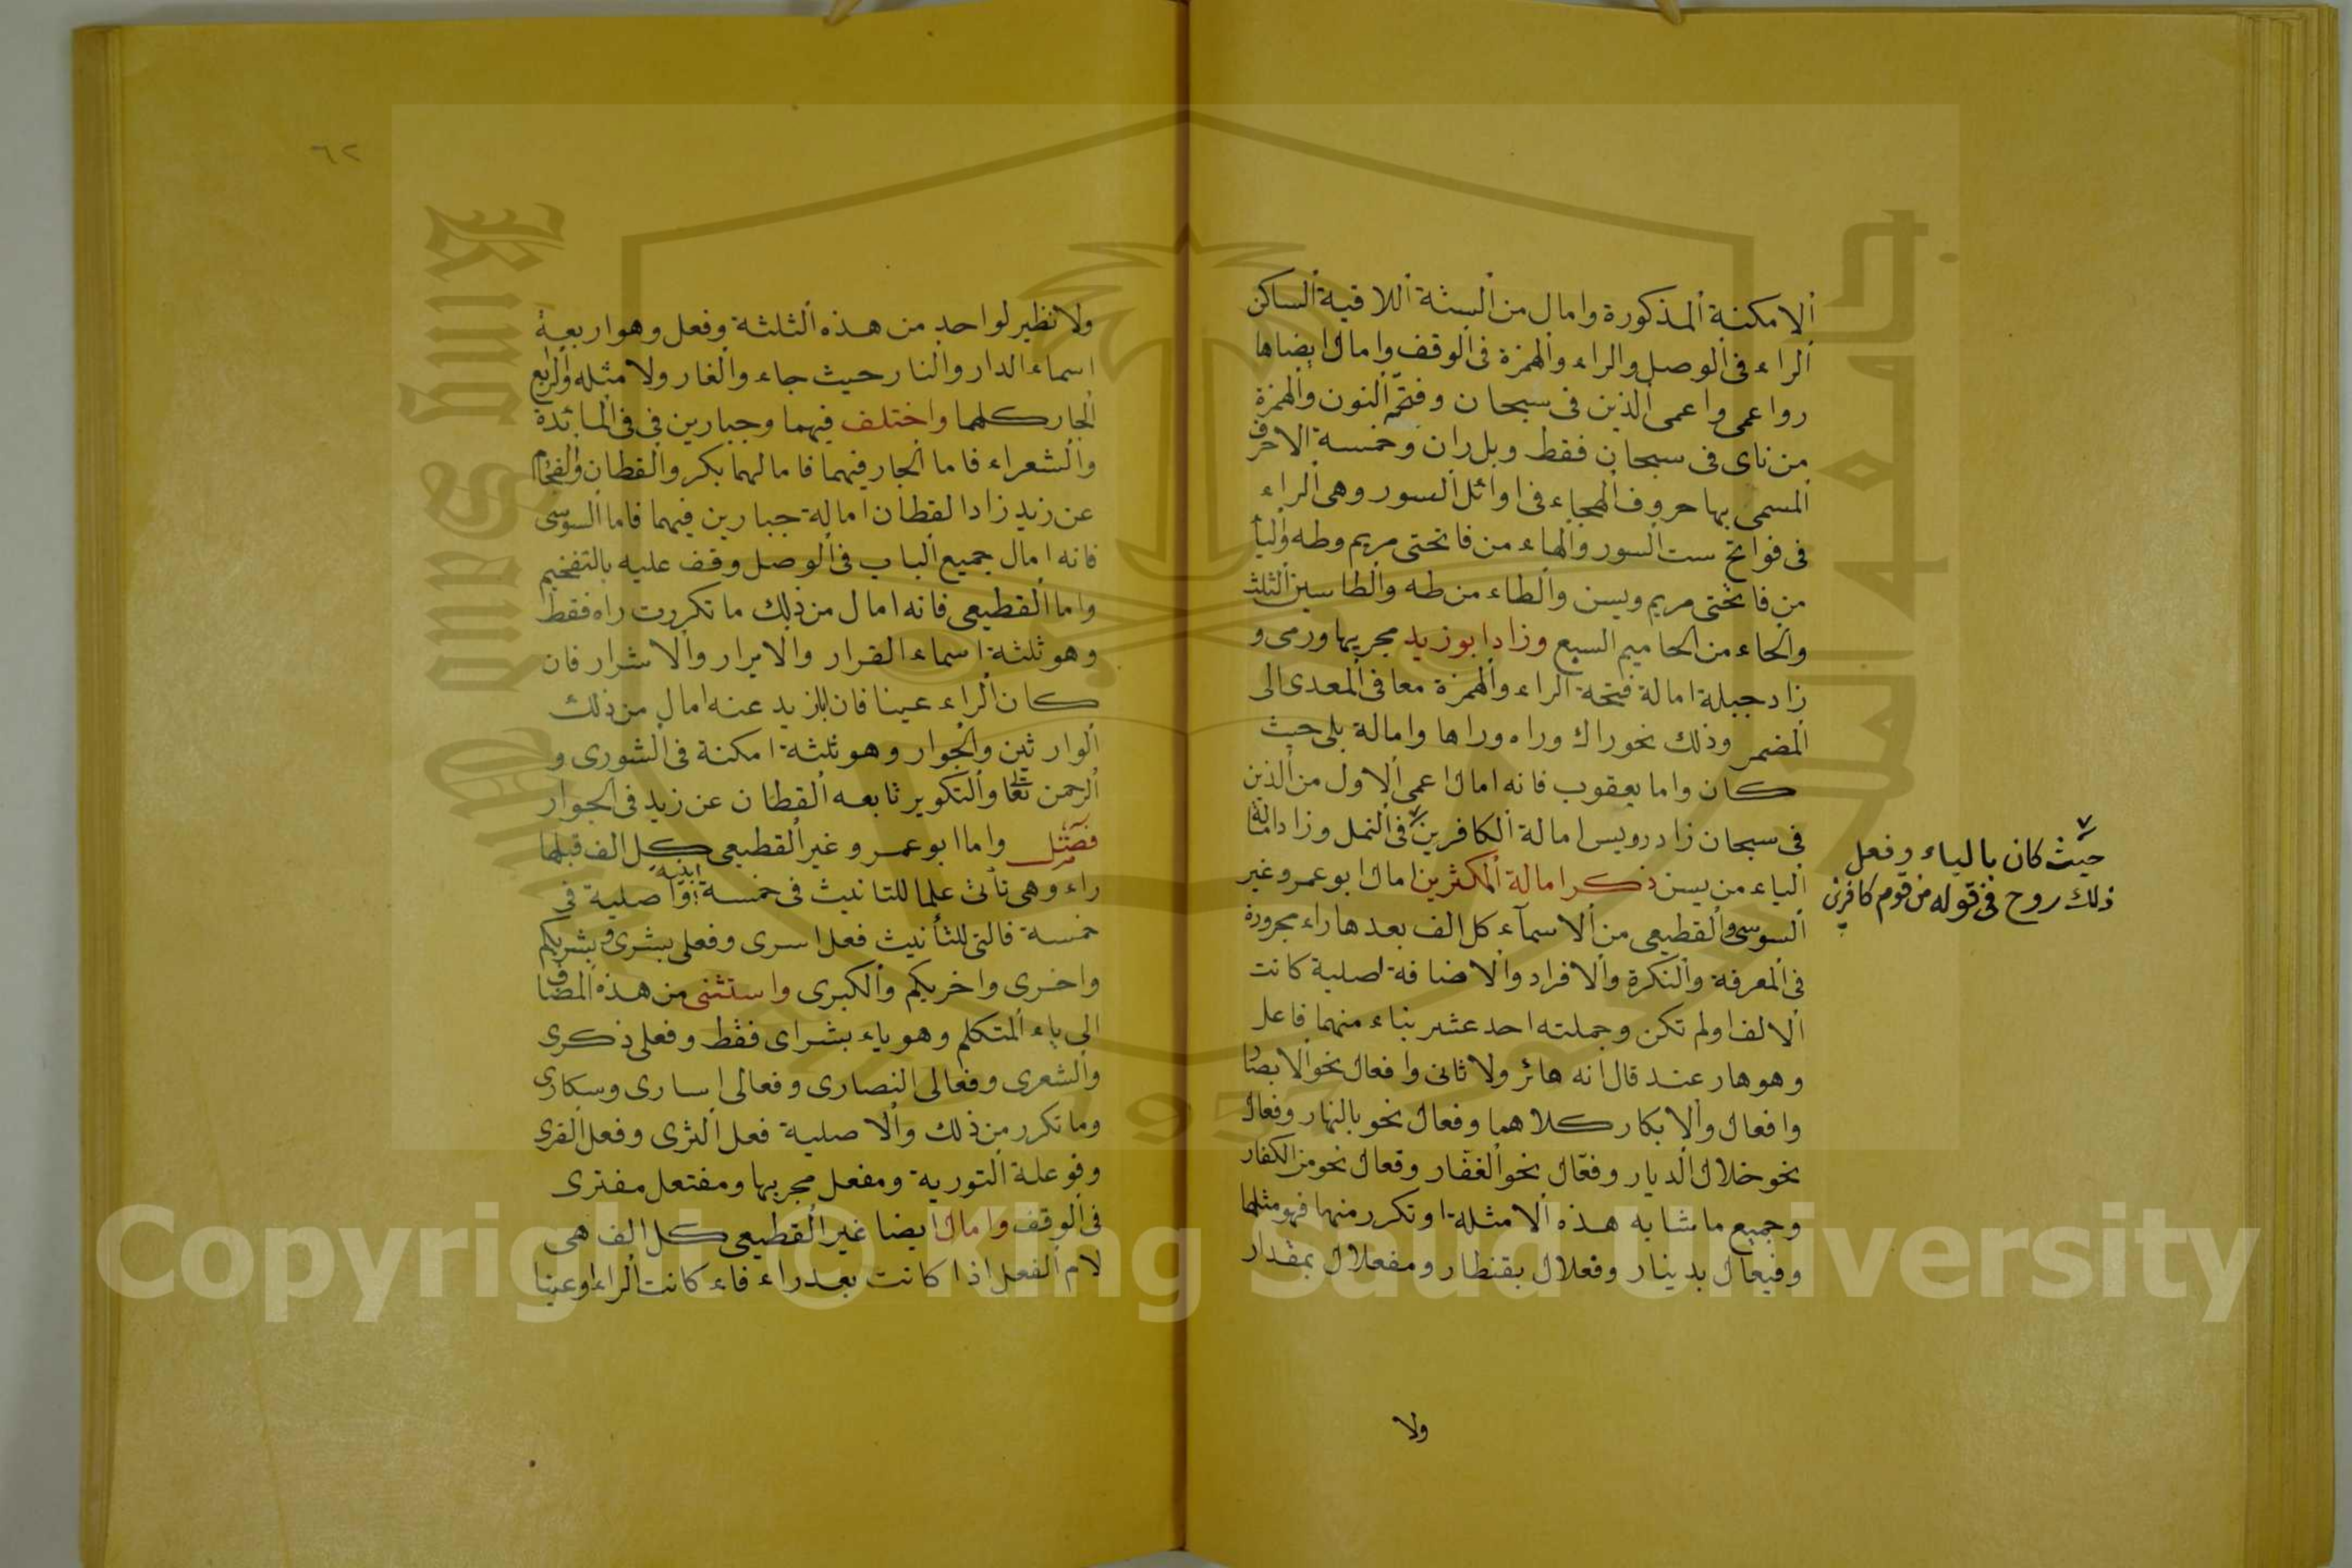 الامكنة المذكورة وامال من الستة اللاقية الساكن
الراء فى الوصل والراء والهمزة فى الوقف وامال ايضاها
رواعمى واعمى الذين فى سبحان وفتح النون والهمزة
من ناى فى سبحان فقط وبل ران وخمسة الاحرف
المسمى بها حروف الهجاء فى اوائل السور وهى الراء
فى فواتح ست السور والهاء من فاتحتى مريم وطه والياء
من فاتحتى مريم ويسن والطاء من طه والطاسين الثلث
والحاء من الحاميم السبع وزاد ابوزيد مجريها ورمى و
زاد جبلة امالة فتحة الراء والهمزة معا فى المعدى الى
المضمر وذلك نحو راك وراه وراها وامالة بلى حيث
كان واما يعقوب فانه امال اعمى الاول من الذين
فى سبحان زاد رويس امالة الكافرين فى النمل وزاد امالة
حيث كان بالياء وفعل
ذلك روح فى قوله من قوم كافرين
الياء من يسن ذكر امالة المكثرين امال ابو عمرو غير
السوسى والقطيعى من الاسماء كل الف بعدها راء مجرورة
فى المعرفة والنكرة والافراد والاضافة اصلية كانت
الالف اولم تكن وجملته احد عشر بناء منهما فاعل
وهو هار عند قال انه هائر ولا ثانى وافعال نحو الابصار
وافعال والابكار كلاهما وفعال نحو بالنهار وفعال
نحو خلال الديار وفعّال نحو الغفّار وفعال نحو من الكفار
وجميع ما شابه هذه الامثلة او تكرر منها فهو مثلها
وفيعال بدينار وفعلال بقنطار ومفعلال بمقدار
ولا
٦٢
ولا نظير لواحد من هذه الثلثة وفعل وهو اربعة
اسماء الدار والنار حيث جاء والغار ولا مثله والرابع
الجار كلهما واختلف فيهما وجبارين فى فى المائدة
والشعراء فاما الجار فيهما فامالهما بكر والقطان والفحام
عن زيد زاد القطان امالة جبارين فيهما فاما السوسى
فانه امال جميع الباب فى الوصل وقف عليه بالتفخيم
واما القطيعى فانه امال من ذلك ما تكررت راه فقط
وهو ثلثة اسماء القرار والابرار والاشرار فان
كان الراء عينا فان ابازيد عنه امال من ذلك
الوارثين والجوار وهو ثلثة امكنة فى الشورى و
الرحمن تعالى والتكوير تابعه القطان عن زيد فى الجوار
فصل واما ابو عمرو غير القطيعى كل الف قبلها
راء وهى تأتى علما للتانيث فى خمسة ابنية واصلية فى
خمسة فالتى للتأنيث فعل اسرى وفعلى بشرى وبشريكم
واخرى واخريكم والكبرى واستثنى من هذه المضاف
الى ياء المتكلم وهو ياء بشراى فقط وفعلى ذكرى
والشعرى وفعالى النصارى وفعالى اسارى وسكارى
وما تكرر من ذلك والاصلية فعل الثرى وفعل القرى
وفوعلة التورية ومفعل مجريها ومفتعل مفترى
فى الوقف وامال ايضا غير القطيعى كل الف هى
لام الفعل اذا كانت بعد راء فاء كانت الراء اوعينا
Copyright © King Saud University